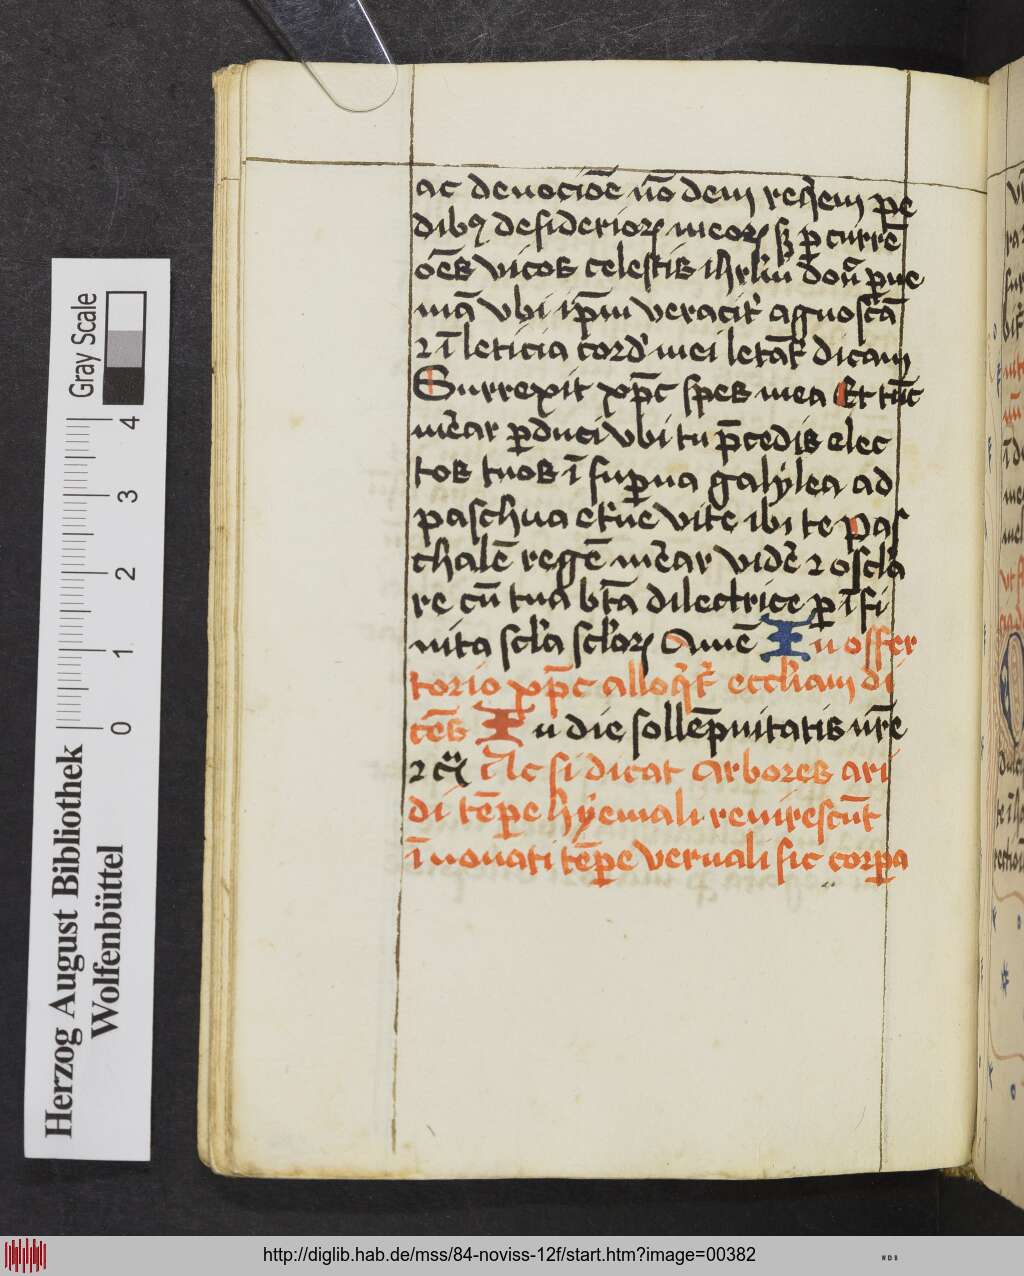 ac deuociõe nõ dem req̃em pe
dibꝰ desideriorꝝ meorꝝ sꝫ ꝑcurrẽ
oẽs vicos celestis ihrl̃m don̄ ꝑue
niã vbi ip̃m veracit͛ agnoscã
⁊ ĩ leticia cord͛ mei letãt͛ dicam
Surrexit xp̃c spes mea Et tũc
mẽar ꝑduci vbi tu p̃cedis elec
tos tuos ĩ suꝑna galÿlea ad
paschua et͛ne vite ibi te pas
chalẽ regẽ mẽar vidẽ ⁊ oscl̃a
re cũ tua bt̃a dilectrice ꝑ ĩfi
nita scl̃a scl̃orꝝ Amẽ In offer
torio xp̃c alloq̃t͛ eccl̃iam di
cẽs In die sollẽpnitatis vr̃e
⁊ cꝫ Ac si dicat Arbores ari
di tẽꝑe hÿemali reuirescũt
ĩnouati tẽꝑe vernali sic corꝑa
Herzog August Bibliothek
Wolfenbüttel
Gray Scale
0 1 2 3 4
http://diglib.hab.de/mss/84-noviss-12f/start.htm?image=00382